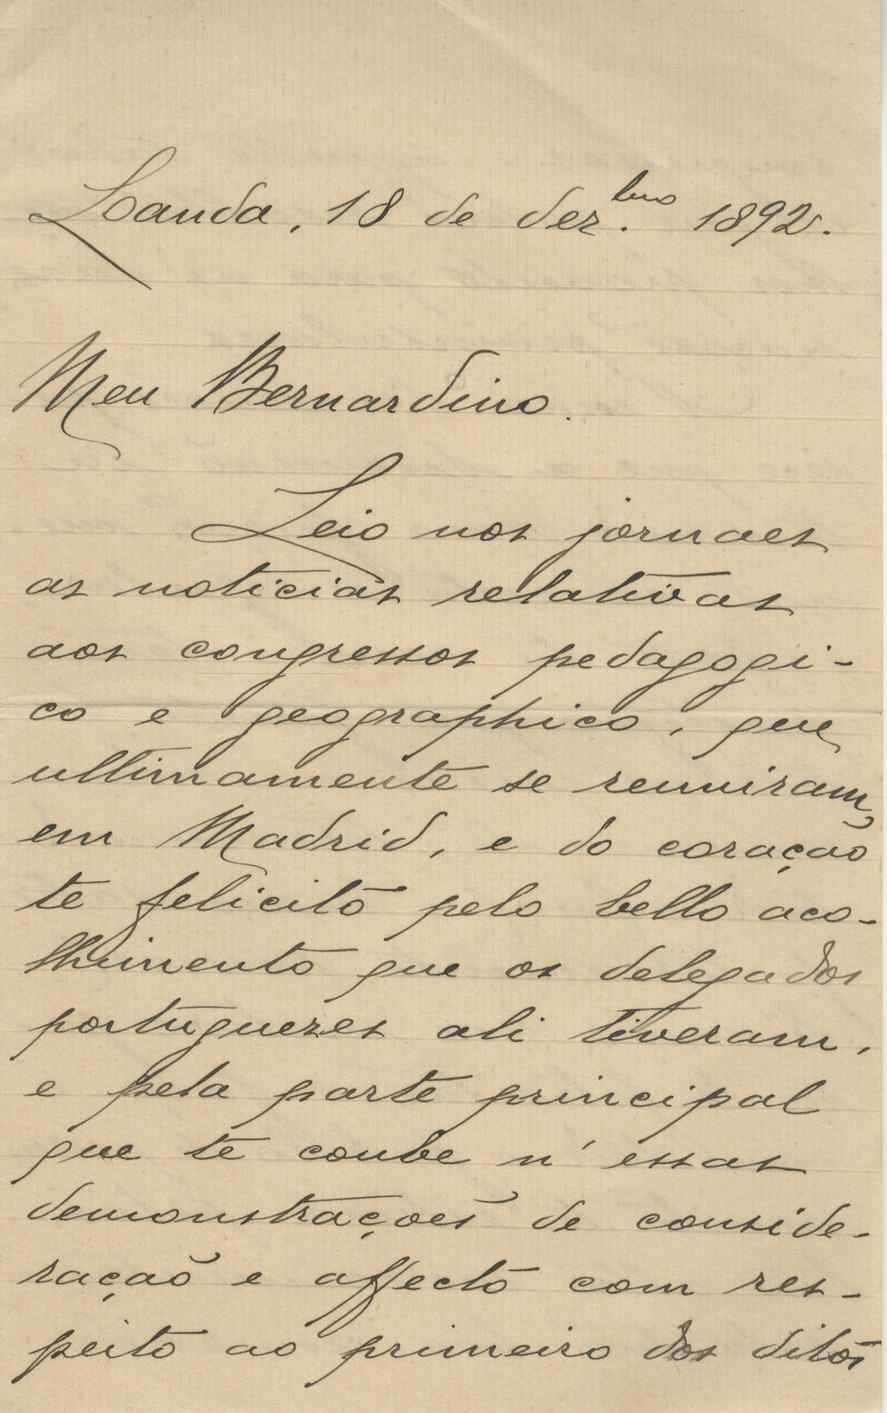 Loanda, 18 de dez.bro 1892.
Meu Bernardino.
Leio nos jornaes
as noticias relativas
aos congressos pedagogi-
co e geographico, que
ultimamente se reuniram
em Madrid, e do coração
te felicito pelo bello aco-
lhimento que os delegados
portuguezes ali tiveram,
e pela parte principal
que te coube n'essas
demonstrações de conside-
ração e affecto com res-
peito ao primeiro dos ditos